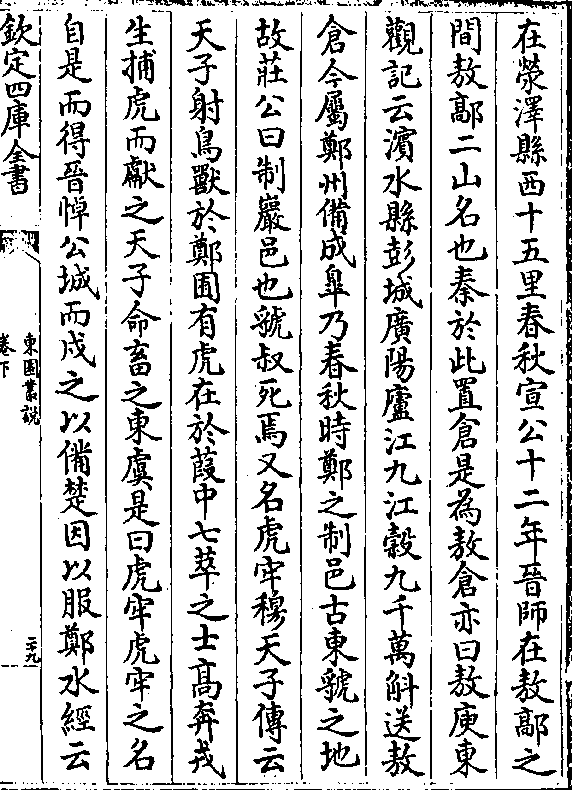 在滎澤縣西十五里春秋宣公十二年晉師在敖鄗之
間敖鄗二山名也秦於此置倉是為敖倉亦曰敖庾東
觀記云濱水縣彭城廣陽廬江九江穀九千萬斛送敖
倉今屬鄭州備成臯乃春秋時鄭之制邑古東虢之地
故莊公曰制巖邑也虢叔死焉又名虎牢穆天子傳云
天子射鳥獸於鄭圃有虎在於葭中七萃之士高奔戎
生捕虎而獻之天子命畜之東虞是曰虎牢虎牢之名
自是而得晉悼公城而戍之以備楚因以服鄭水經云
欽定四庫全書
東園叢說
卷下
二十九